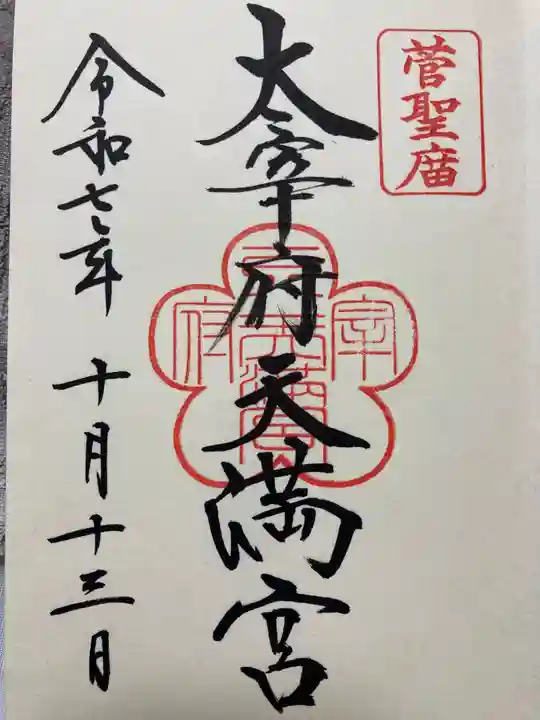 菅聖庿
太宰府天満宮
令和七年 十月十三日